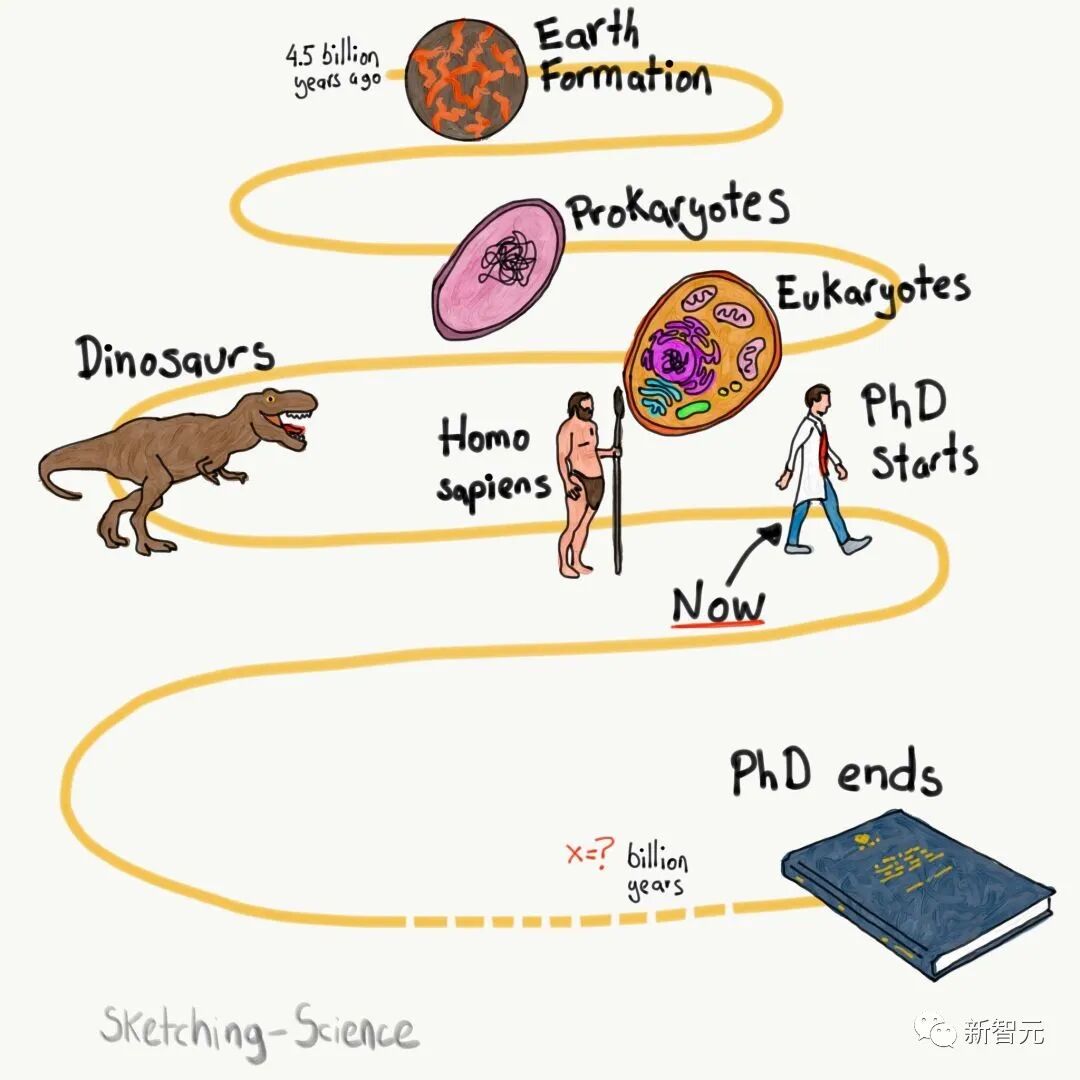 4.5 billion
years ago
Earth
Formation
Prokaryotes
Eukaryotes
Dinosaurs
Homo
sapiens
PhD
starts
Now
PhD ends
x=? billion
years
Sketching-Science
新智元